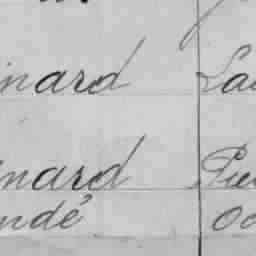 inard La
inard Pie
ndé Oc